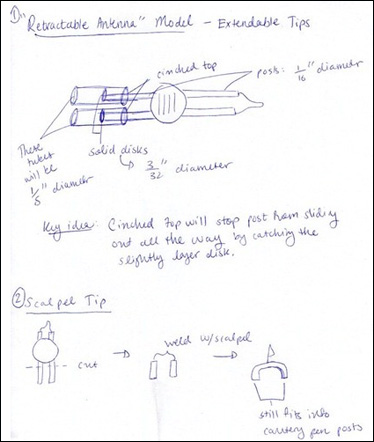 1) "Retractable Antenna" Model – Extendable Tips
cinched top
posts: 1/16" diameter
solid disks
→ 3/32" diameter
These
tubes
will be
1/8" diameter
Key idea: Cinched top will stop post from sliding
out all the way by catching the
slightly larger disk.
2) Scalpel Tip
cut
weld w/scalpel
still fits into
cautery pen posts